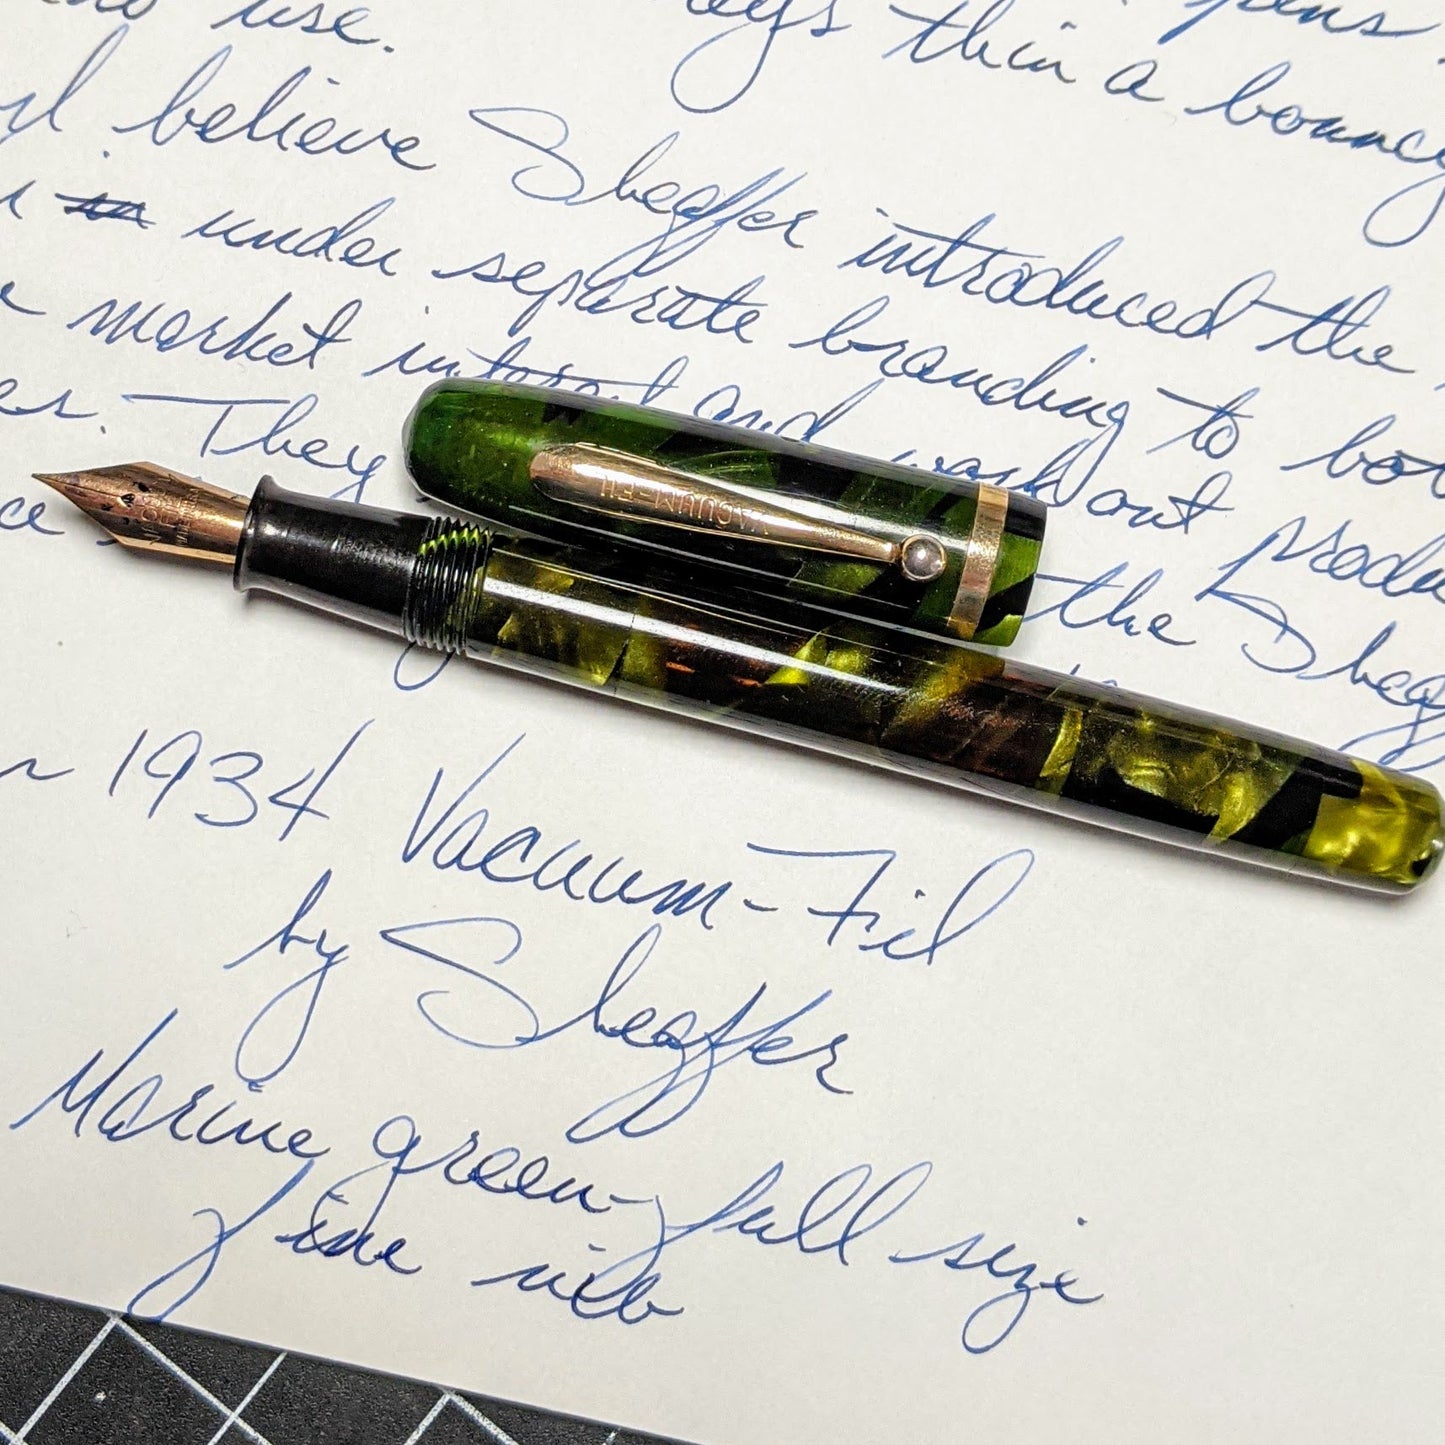 no use. keys thin a bouncy pens
I believe Sheaffer introduced the
under separate branding to both
market interest and work out produ
They the Sheaff
1934 Vacuum-Fil
by Sheaffer
Marine green, full size
fine nib
VACUUM-FIL